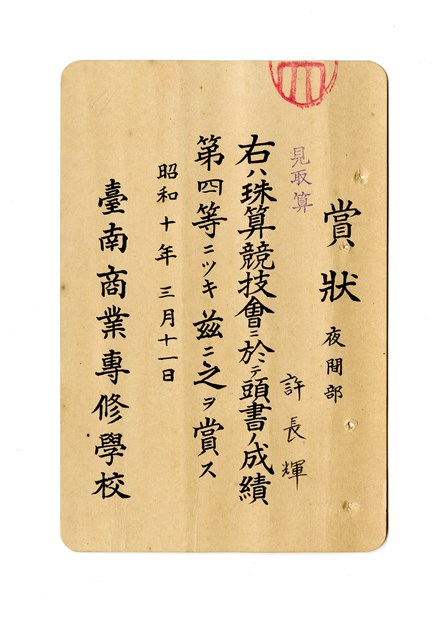 賞狀
夜間部
許長輝
見取算
右ハ珠算競技會ニ於テ頭書ノ成績
第四等ニツキ茲ニ之ヲ賞ス
昭和十年三月十一日
臺南商業專修學校